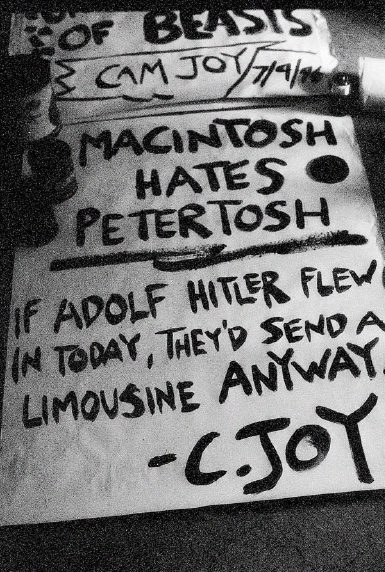 OF BEASTS
CAM JOY/7/9/96
MACINTOSH
HATES
PETERTOSH
IF ADOLF HITLER FLEW
IN TODAY, THEY'D SEND A
LIMOUSINE ANYWAY.
-C.JOY